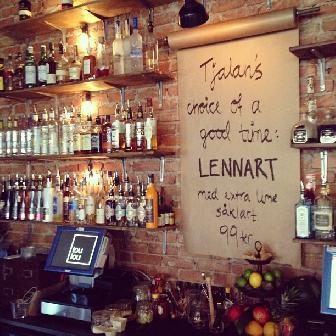 Tjalan's
choice of a
good time:
LENNART
med extra lime
såklart
99kr